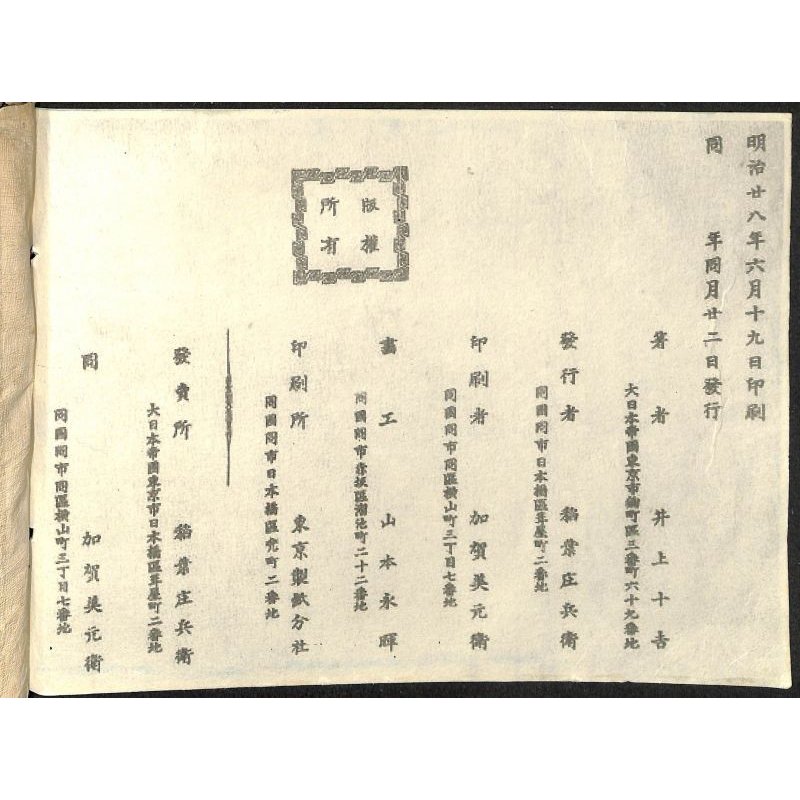 明治廿八年六月十九日印刷
同 年同月廿二日發行
版權
所有
著者 井上十吉
大日本帝國東京市麹町區三番町六十九番地
發行者 稻葉庄兵衛
同國同市日本橋區葺屋町二番地
印刷者 加賀美元衛
同國同市同區横山町三丁目七番地
畫工 山本永暉
同國同市赤坂區溜池町二十二番地
印刷所 東京製紙分社
同國同市日本橋區兜町二番地
發賣所 稻葉庄兵衛
大日本帝國東京市日本橋區葺屋町二番地
同 加賀美元衛
同國同市同區横山町三丁目七番地